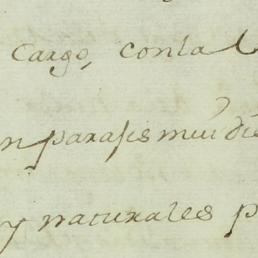 cargo, con la
n parajes mui dis
y naturales p